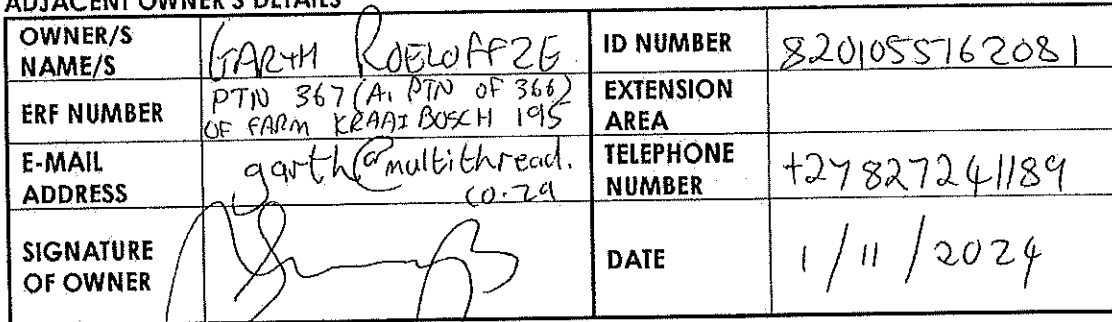 ADJACENT OWNER'S DETAILS
OWNER/S NAME/S GARTH ROELOFFZE ID NUMBER 8201055162081
ERF NUMBER PTN 367 (A, PTN OF 366) OF FARM KRAAIBOSCH 195 EXTENSION AREA
E-MAIL ADDRESS garth@multithread.co.za TELEPHONE NUMBER +27827241189
SIGNATURE OF OWNER DATE 1/11/2024